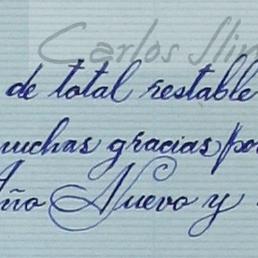 Carlos Slim
de total restable
muchas gracias por
Año Nuevo y